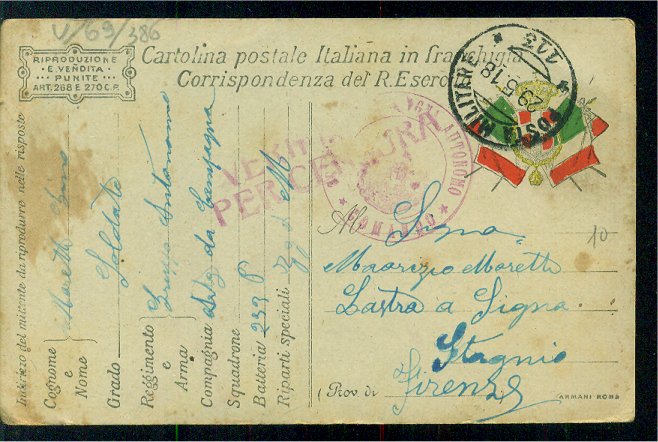 V/69/386
RIPRODUZIONE
E VENDITA
PUNITE
ART. 268 E 270 C.P.
Cartolina postale Italiana in franchigia
Corrispondenza del R. Eserc
POSTA MILITARE
113
29.5.18
VERIF
PER CENSURA
AUTONOMO
COMANDO
Al Signor
Maurizio Moretti
Lastra a Signa
Stagnio
(Prov. di Firenze
10
ARMANI ROMA
Indirizzo del mittente da riprodurre nelle risposte
Cognome e Nome Moretti Gino
Grado Soldato
Reggimento e Arma Gruppo Autonomo
Compagnia da Campagna
Squadrone
Batteria 232
Riparti speciali